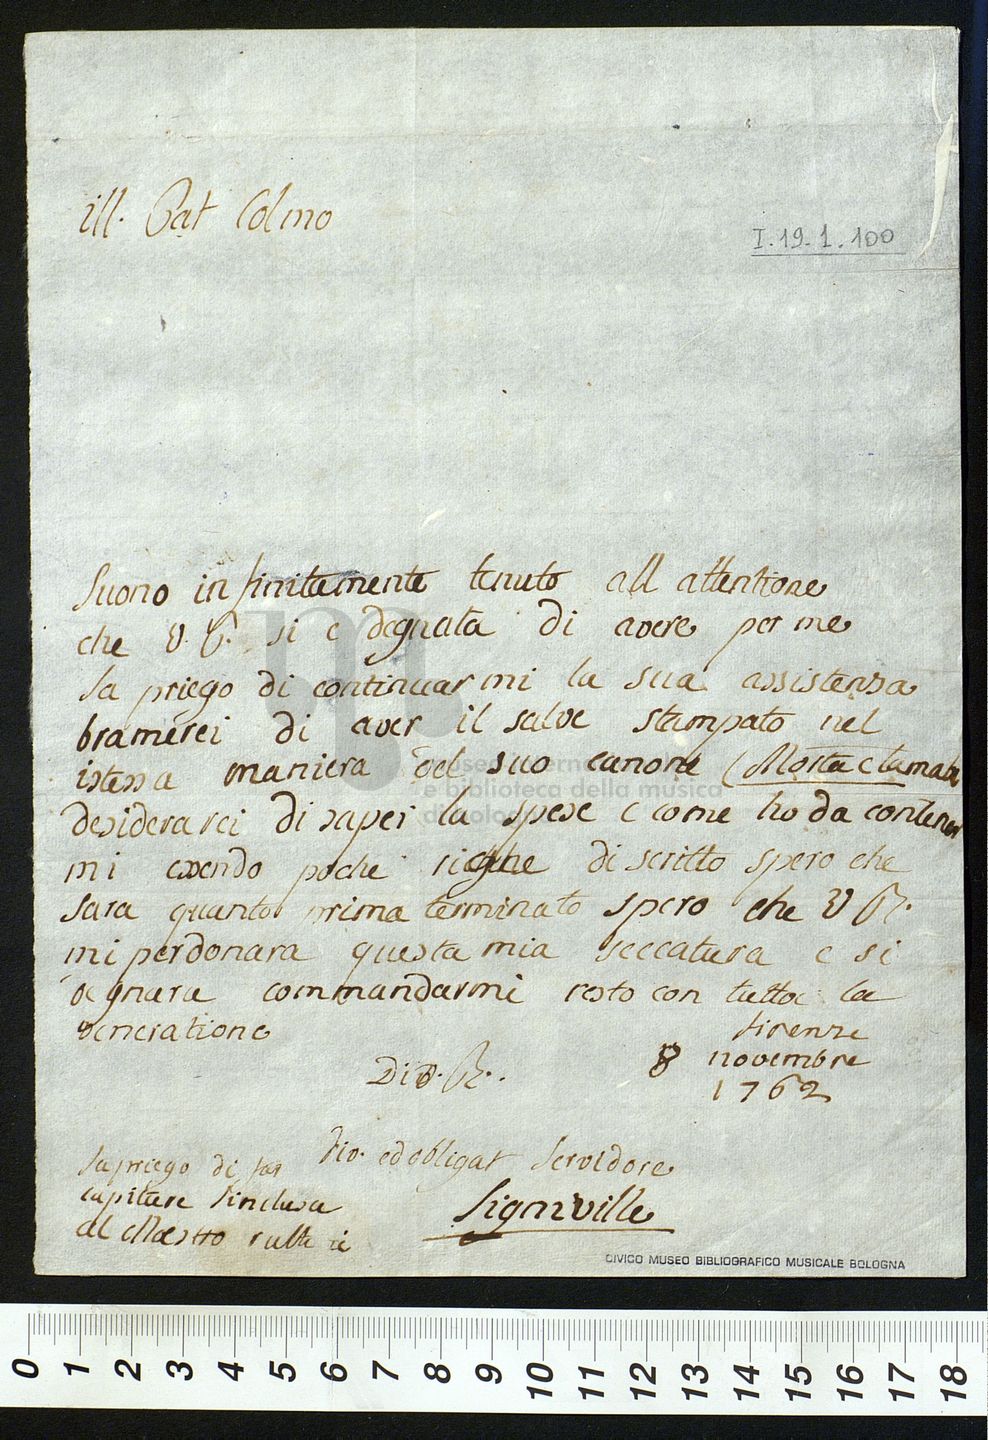 ill. Pat Colmo
I.19.1.100
Suono infinitemente tenuto all attentione
che V. P. si e degnata di avere per me
la priego di continuarmi la sua assistenza
bramerei di aver il salve stampato nel
istessa maniera del suo canone (Mosta clamabi
desiderarei di saper la spese e come ho da contener
mi essendo poche righe di scritto spero che
sara quanto prima terminato spero che V R.
mi perdonara questa mia seccatura e si
degnara commandarmi resto con tutta la
veneratione
firenze
8 novembre
1762
Di V. R.
Div. ed obligat Servidore
Signville
la priego di far
capitare l'inclusa
al Maestro
CIVICO MUSEO BIBLIOGRAFICO MUSICALE BOLOGNA
museo internazionale
e biblioteca della musica
di bologna
0 1 2 3 4 5 6 7 8 9 10 11 12 13 14 15 16 17 18